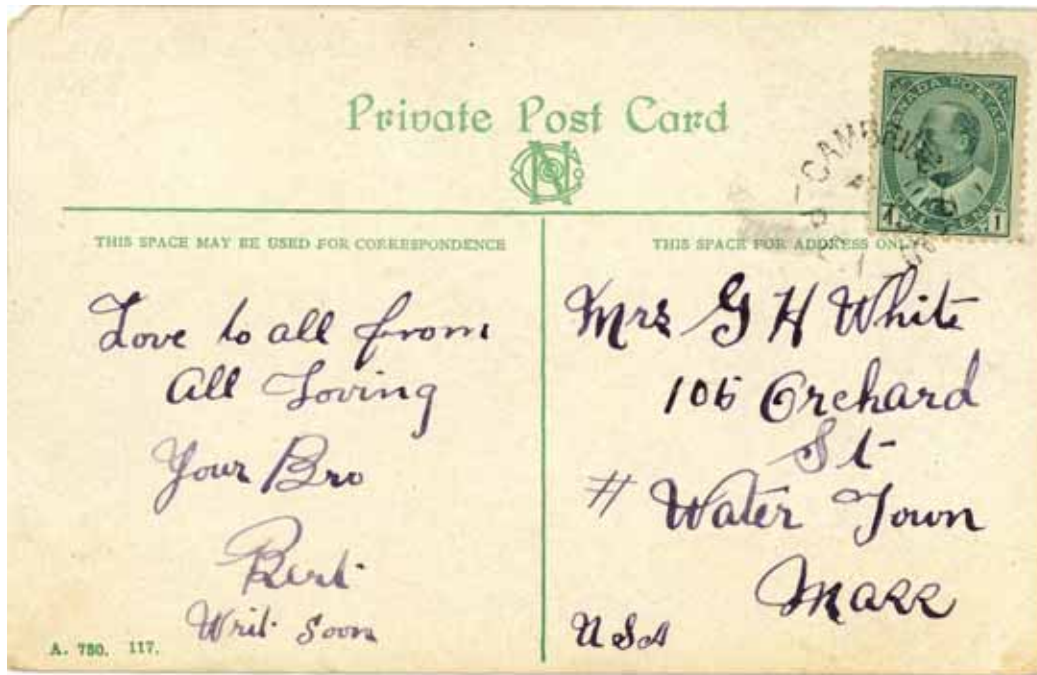 Private Post Card
CANADA POSTAGE
1 ONE CENT 1
CAMBRIDGE
THIS SPACE MAY BE USED FOR CORRESPONDENCE
Love to all from
All Loving
Your Bro
Bert
Writ Soon
A. 780. 117.
THIS SPACE FOR ADDRESS ONLY
Mrs G H White
106 Orchard
St
# Water Town
Mass
USA